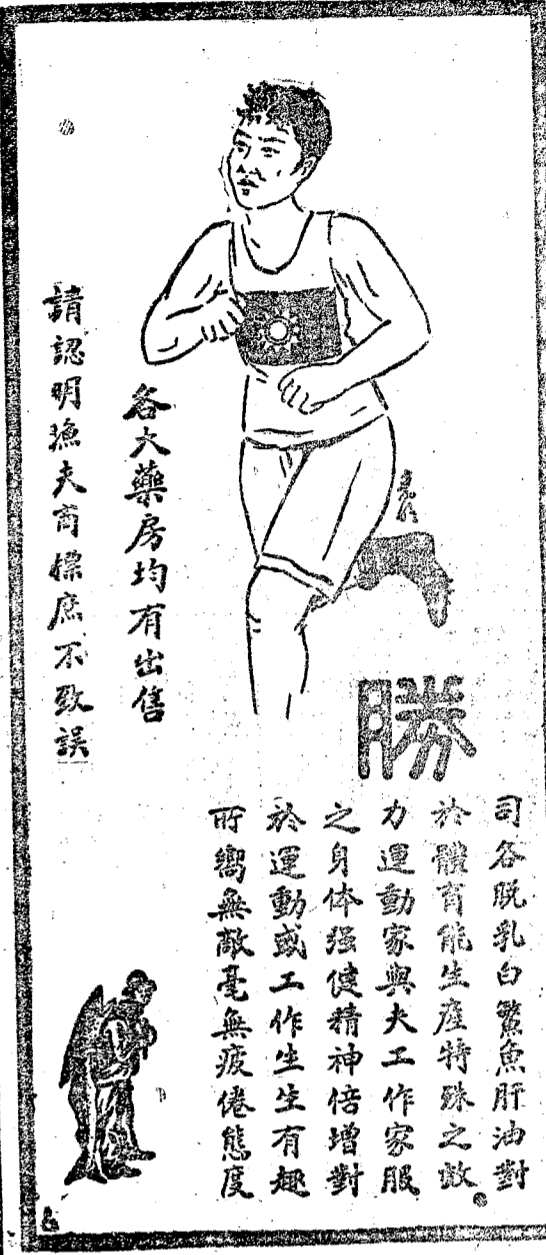 勝
司各脱乳白鰵魚肝油對
於體育能生產特殊之效
力運動家與夫工作家服
之身体强健精神倍增對
於運動或工作生生有趣
所嚮無敵毫無疲倦態度
各大藥房均有出售
請認明漁夫商標庶不致誤